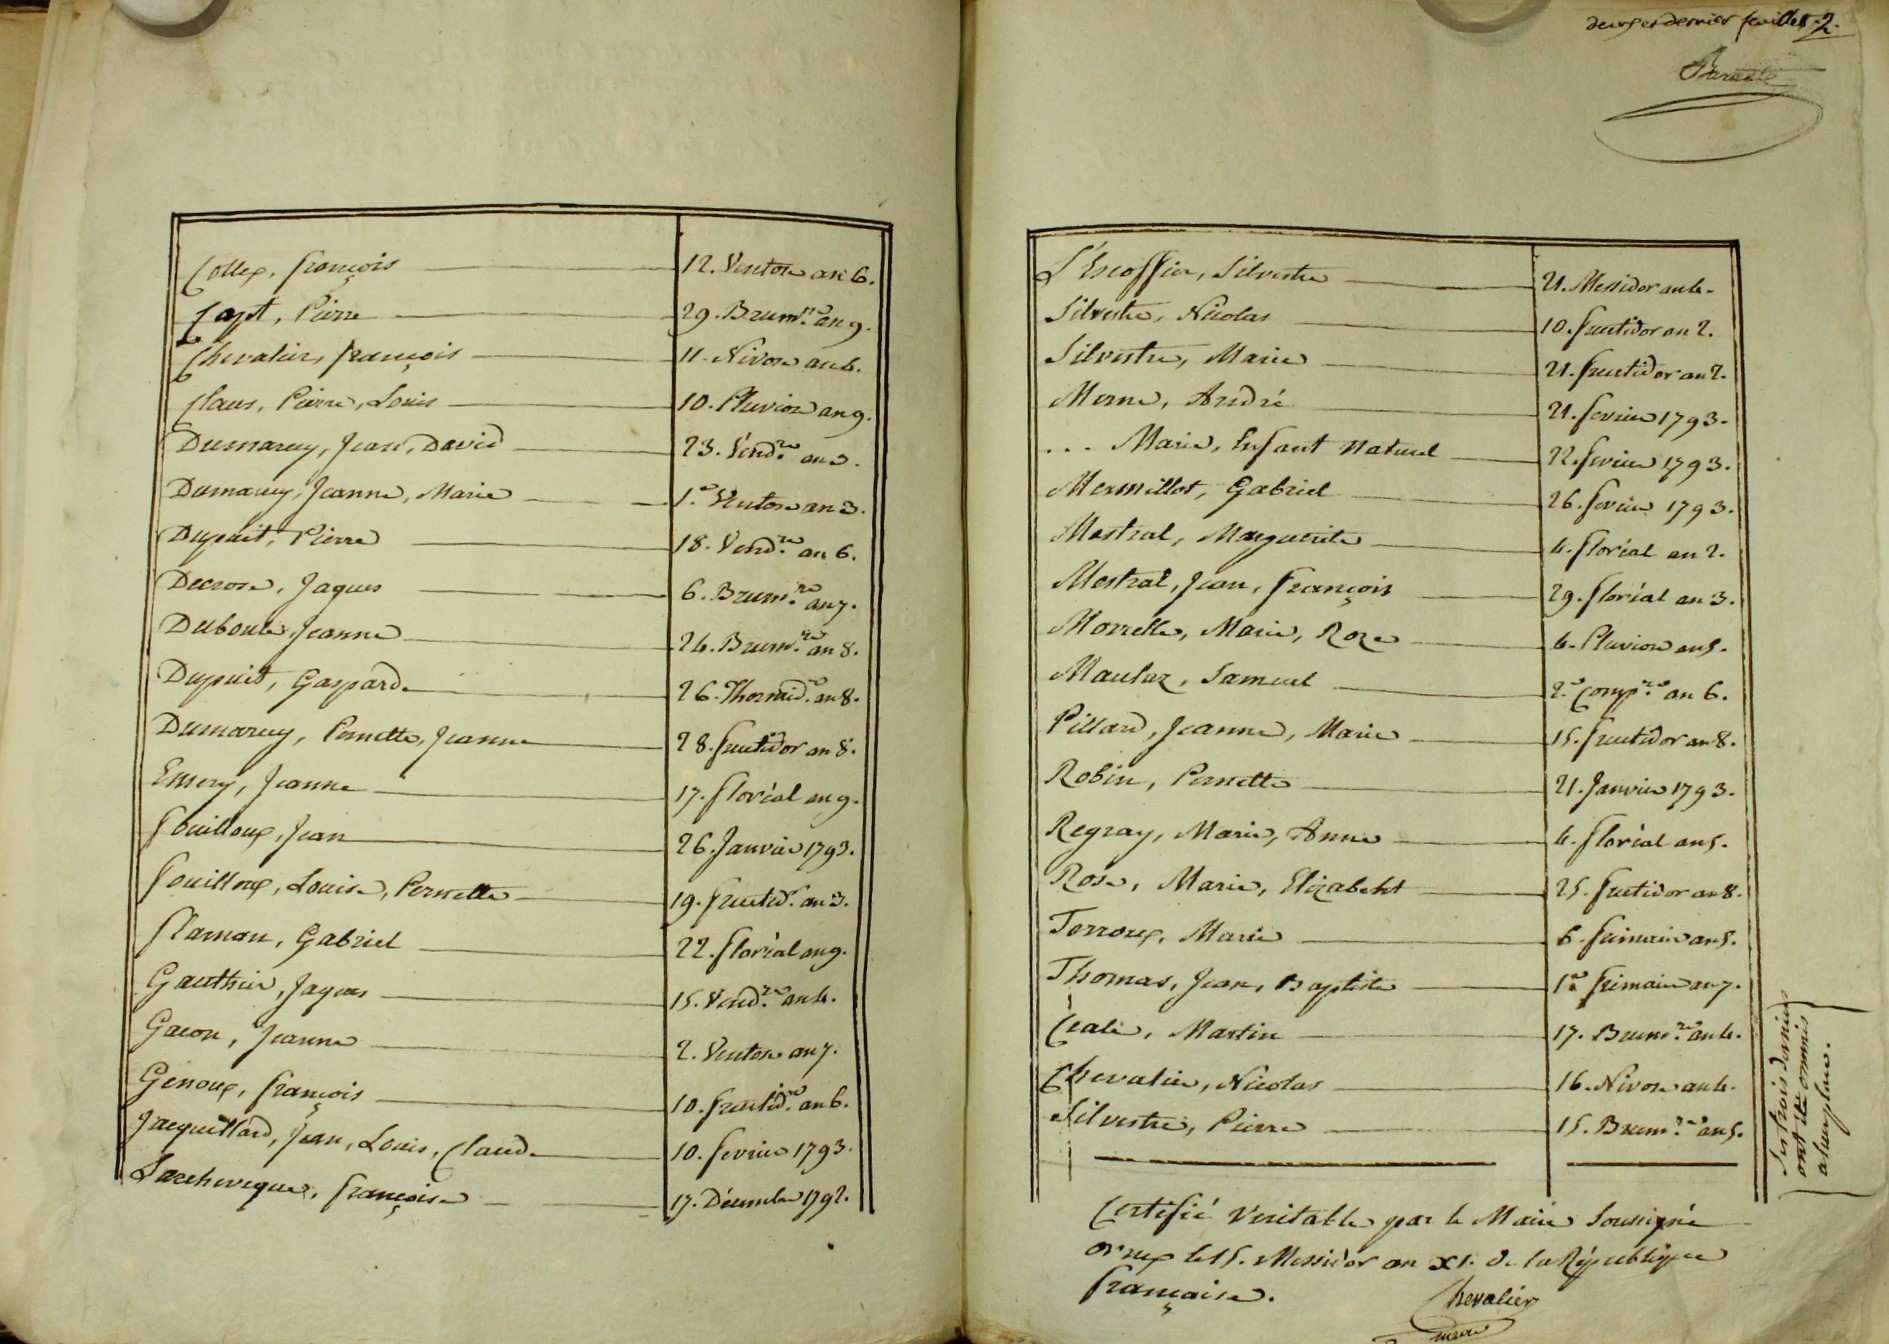 Collex, François 12. Ventose an 6.
Capt, Pierre 29. Brum.re an 9.
Chevalier, François 11. Nivose an 6.
Claus, Pierre, Louis 10. Pluviose an 9.
Dumarey, Jean, David 23. Vend.re an 3.
Dumarey, Jeanne, Marie 1.er Ventose an 3.
Dupuit, Pierre 18. Vend.re an 6.
Decrose, Jaques 6. Brum.re an 7.
Duboule, Jeanne 24. Brum.re an 8.
Dupuit, Gaspard 26. Thermid.r an 8.
Dumarey, Pernette, Jeanne 28. fructidor an 8.
Emery, Jeanne 17. floréal an 9.
Fouilloux, Jean 26. Janvier 1793.
Fouilloux, Louise, Pernette 19. fructid.r an 3.
Flaman, Gabriel 22. floréal an 9.
Gauthier, Jaques 15. Vend.re an 4.
Gacon, Jeanne 2. Ventose an 7.
Genoux, François 10. fructid.re an 6.
Jaequillard, Jean, Louis, Claud. 10. fevrier 1793.
Larcheveque, Françoise 17. Décembre 1792.
deux et dernier feuillet .2.
L'Escoffier, Silvestre 21. Messidor an 4.
Silvestre, Nicolas 10. fructidor an 2.
Silvestre, Marie 21. fructidor an 2.
Merme, André 21. fevrier 1793.
... Marie, Enfant Naturel 22. fevrier 1793.
Mermillot, Gabriel 26. fevrier 1793.
Mestral, Marguerite 4. floréal an 2.
Mestral, Jean, François 29. floréal an 3.
Morrelle, Marie, Roze 4. Pluviose an 5.
Maulaz, Samuel 2.e Comp.re an 6.
Pillard, Jeanne, Marie 15. fructidor an 8.
Robin, Pernette 21. Janvier 1793.
Regray, Marie, Anne 4. floréal an 5.
Rose, Marie, Elizabeht 25. fructidor an 8.
Terroux, Marie 6. frimaire an 5.
Thomas, Jean, Baptiste 1.er frimaire an 7.
Martin 17. Brum.re an 4.
Chevalier, Nicolas 16. Nivose an 4.
Silvestre, Pierre 15. Brum.re an 5.
Les trois derniers
ont été ommis
a leur place.
Certifié Veritable par le Maire Soussigné
ornex le 15. Messidor an XI. de la République
française.
Chevalier
maire